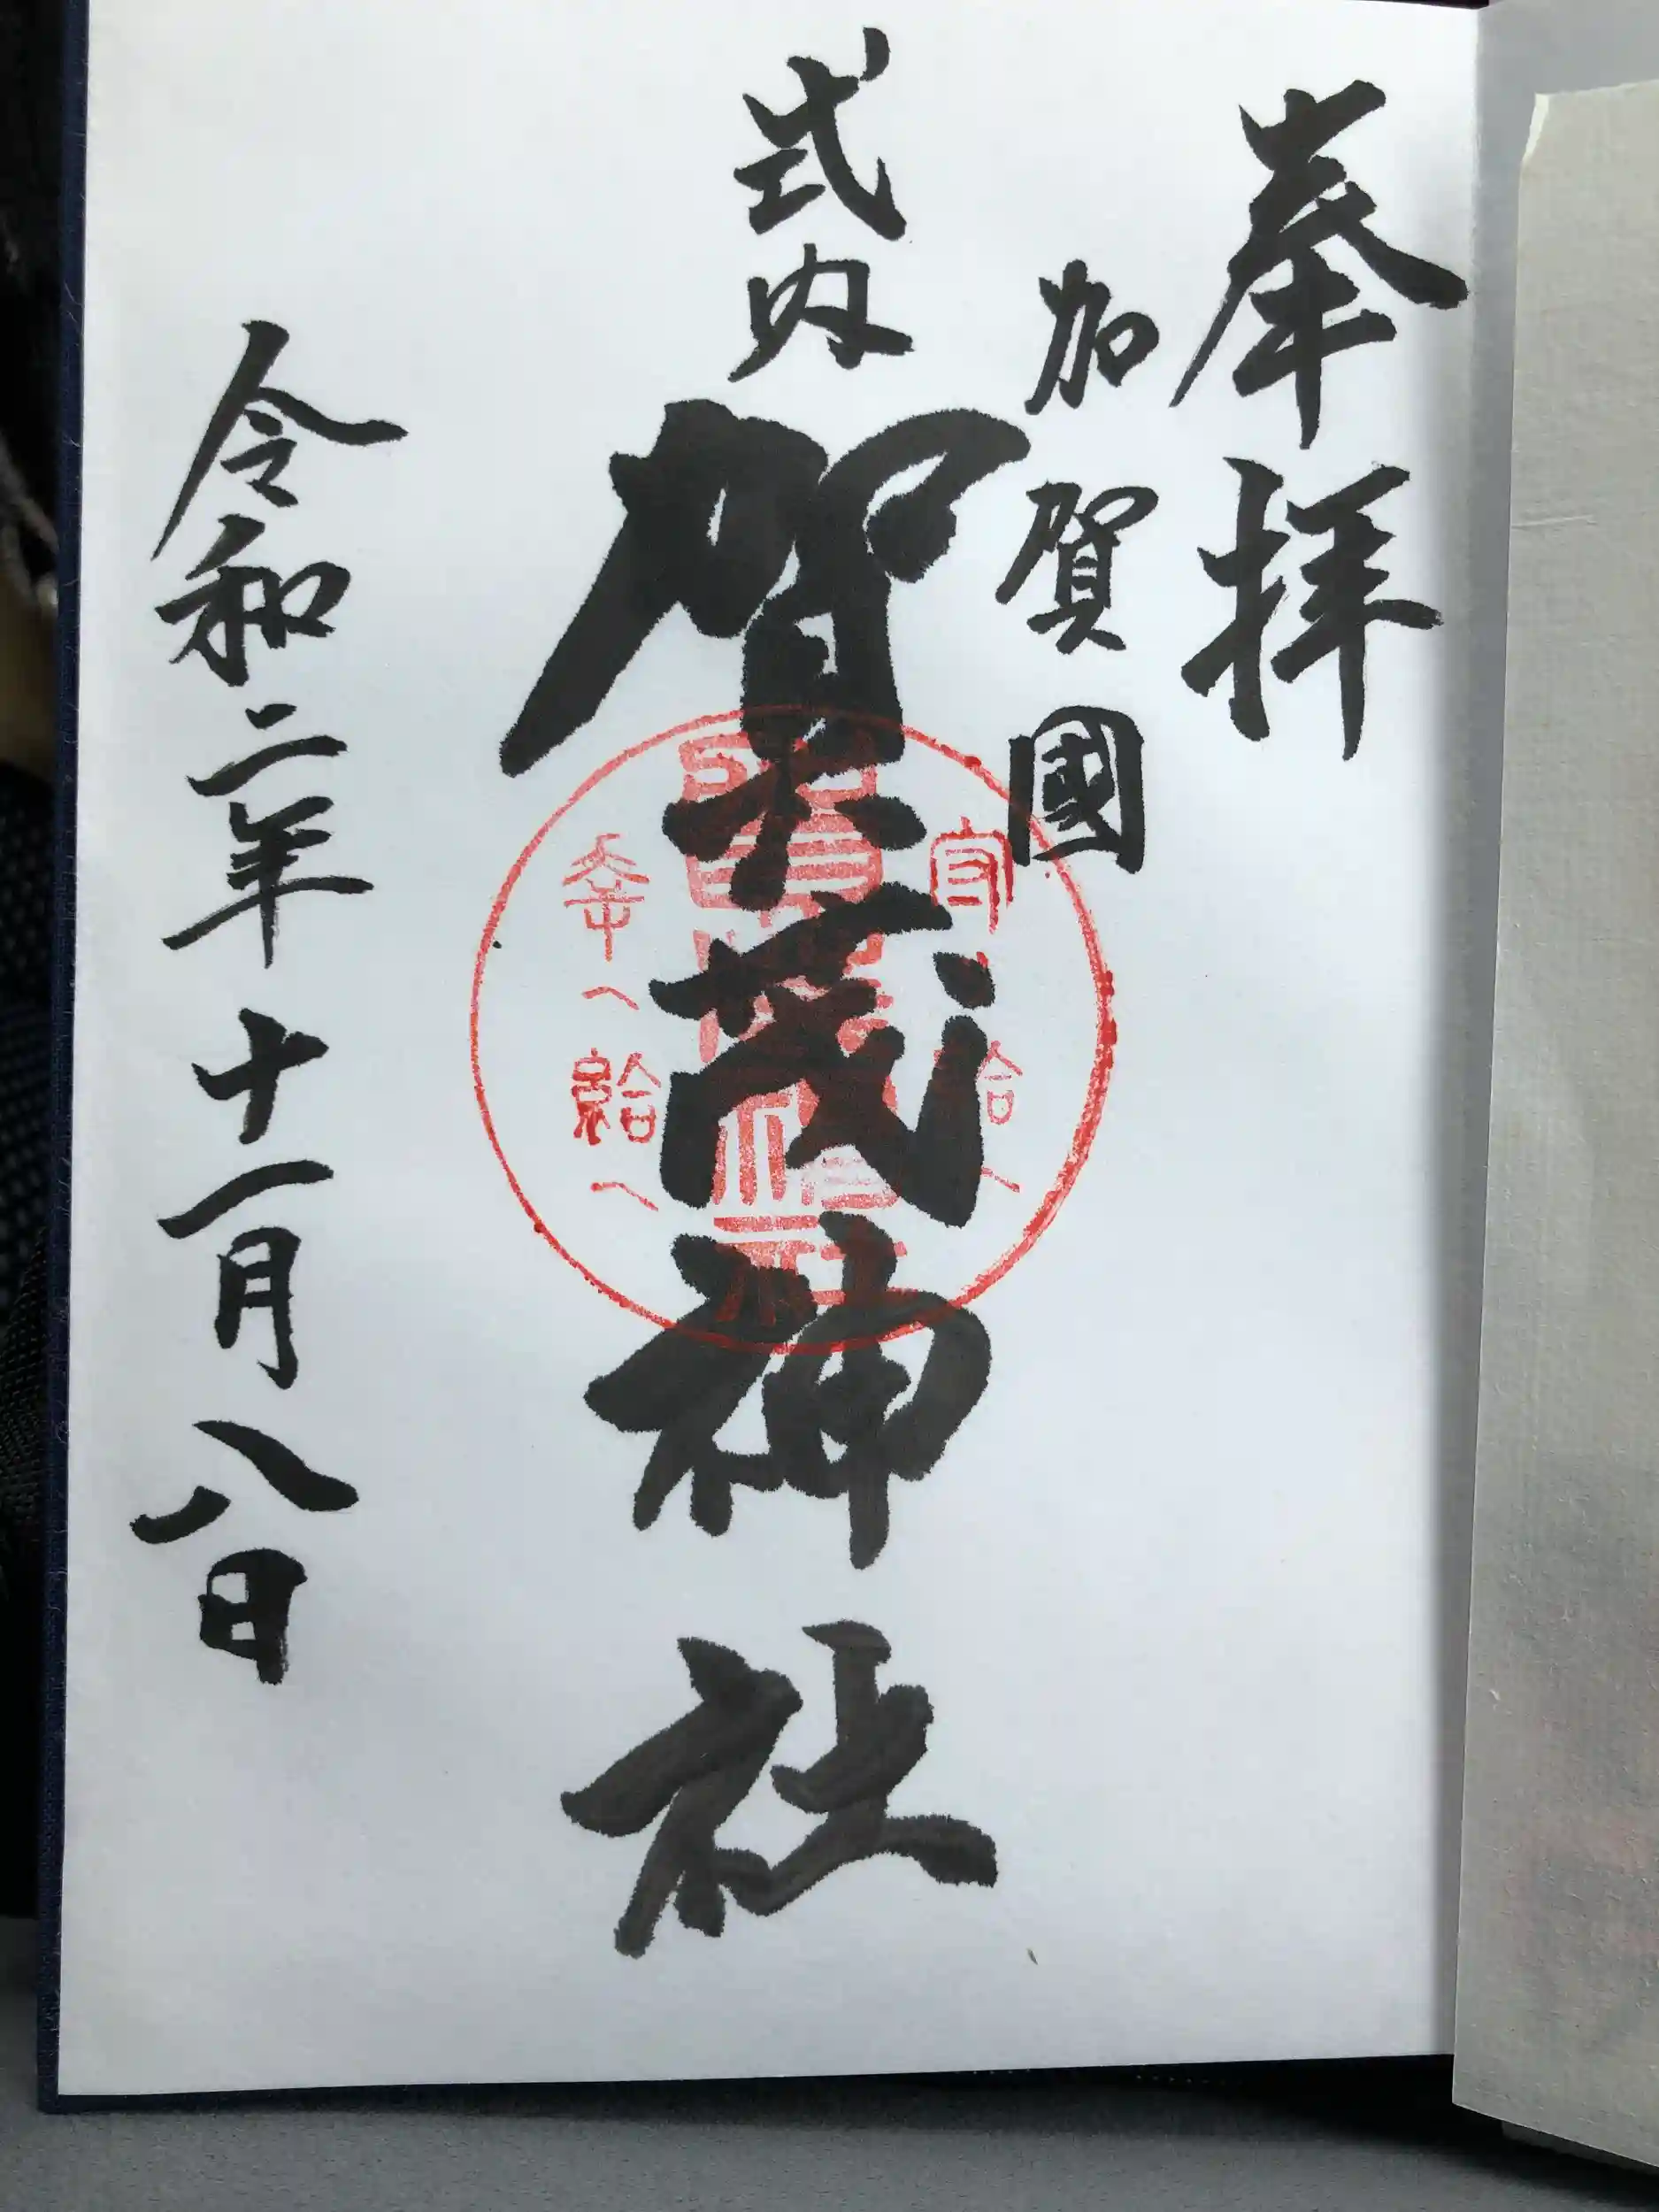 奉拝
加賀國
式内
賀茂神社
守り給へ
幸へ給へ
令和二年十一月八日